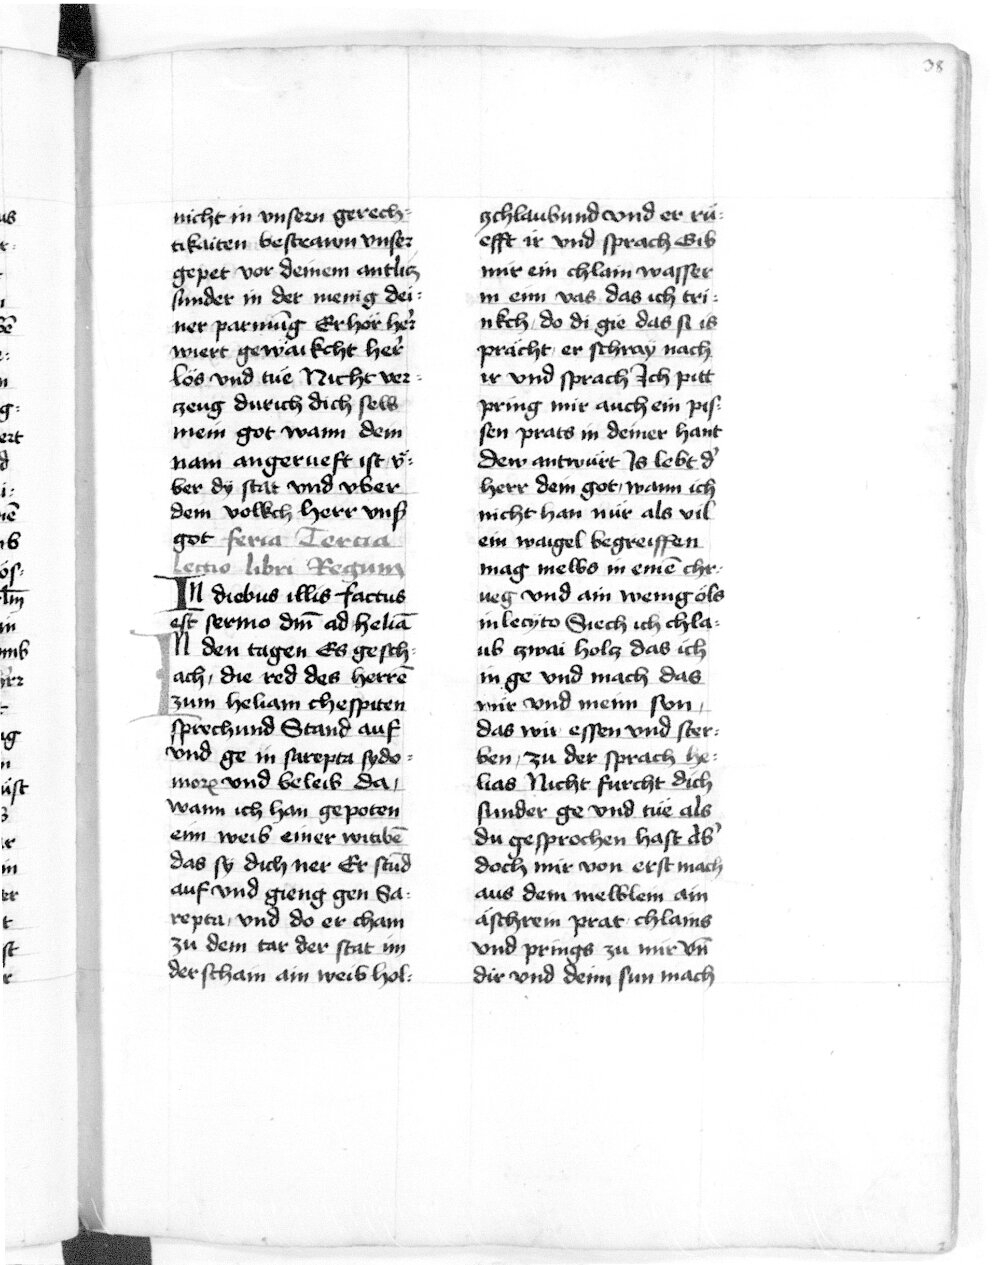 38
nicht in vnsern gerech-
tikaiten bestrawn vnser
gepet vor deinem antlitz
sunder in der menig dei-
ner parmūg Erhör her̄
wiert gewaikcht her̄
lös vnd tüe Nicht ver-
zeug durich dich selb
mein got wann dein
nam angerueft ist v̈-
ber dy stat vnd vber
dein volkch herr vnser
got feria Tercia
Lectio libri Regum
IN diebus illis factus
est sermo dm̄ ad heliā
IN den tagen Es gesch-
ach, die red des herrē
zum heliam chespiten
sprechund Stand auf
vnd ge in sarepta sydo-
morꝝ vnd beleib da,
wann ich han gepoten
eim weib einer witibē
das sy dich ner Er stūd
auf vnd gieng gen Sa-
repta, vnd do er cham
zu dem tar der stat im
derscham ain weib hol-
czchlaubund vnd er rü-
efft ir vnd sprach Gib
mir ein chlain wasser
in eim vas das ich tri-
nkch, do di gie das si is
prächt, er schray nach
ir vnd sprach Ich pitt
pring mir auch ein pis-
sen prats in deiner hant
Dew antwurt Is lebt d'
herr dein got, wann ich
nicht han nür als vil
ein waigel begreiffen
mag melbs in einē chr-
ueg vnd ain wenig öls
in lecyto Siech ich chla-
ub zwai holcz das ich
in ge vnd mach das
mir vnd meim sun,
das wir essen vnd ster-
ben, zu der sprach he-
lias Nicht furcht dich
sunder ge vnd tüe als
du gesprochen hast Ab'
doch mir von erst mach
aus dem melblein ain
äschrein prat chlains
vnd prings zu mir Vn̄
dir vnd deim sun mach